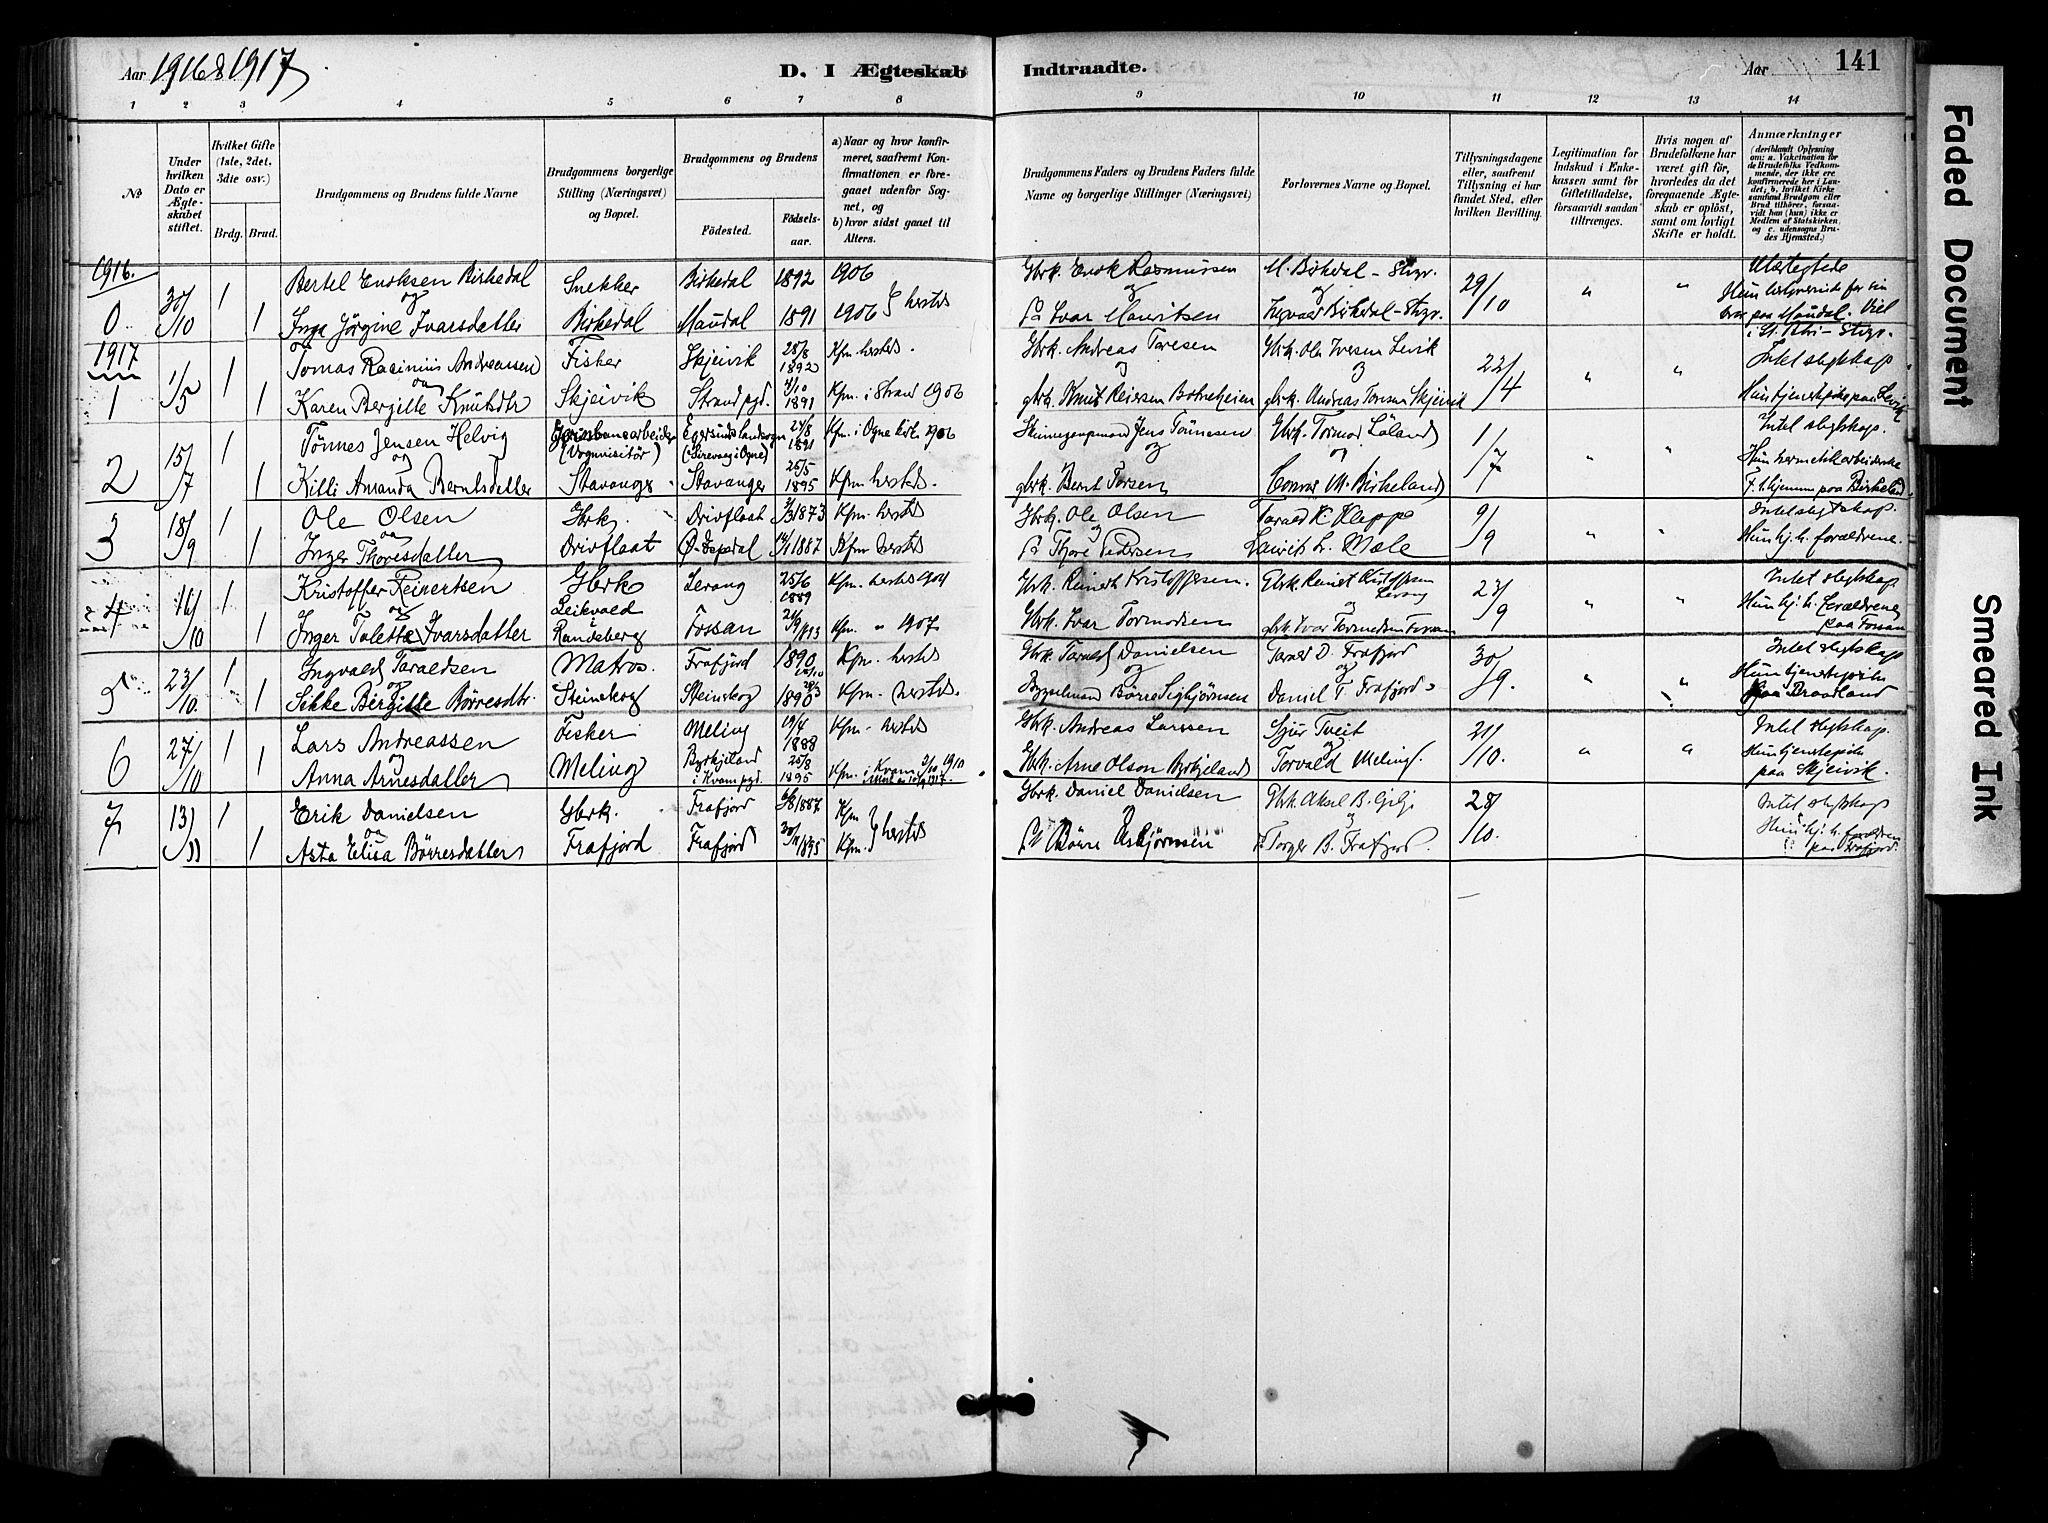 Aar 1916 & 1917
D. I Ægteskab Indtraadte.
Aar 141
1 2 3 4 5 6 7 8 9 10 11 12 13 14
№
Under hvilken Dato er Ægteskabet stiftet.
Hvilket Gifte (1ste, 2det, 3die osv.)
Brdg. Brud.
Brudgommens og Brudens fulde Navne
Brudgommens borgerlige Stilling (Næringsvei) og Bopæl.
Brudgommens og Brudens
Födested. Födsels-aar.
a) Naar og hvor konfirmeret, saafremt Konfirmationen er foregaaet udenfor Sognet, og
b) hvor sidst gaaet til Alters.
Brudgommens Faders og Brudens Faders fulde Navne og borgerlige Stillinger (Næringsvei)
Forlovernes Navne og Bopæl.
Tillysningsdagene eller, saafremt Tillysning ei har fundet Sted, efter hvilken Bevilling.
Legitimation for Indskud i Enkekassen samt for Giftetilladelse, forsaavidt saadan tiltrænges.
Hvis nogen af Brudefolkene har været gift för, hvorledes da det foregaaende Ægteskab er oplöst, samt om lovligt Skifte er holdt.
Anmærkninger
(deriblandt Oplysning om: a. Vakcination for de Brudefolks Vedkommende, der ikke ere konfirmerede her i Landet; b. hvilket Kirkesamfund Brudgom eller Brud tilhörer, forsaavidt han (hun) ikke er Medlem af Statskirken, og c. udensogns Brudes Hjemsted.)
1916.
0 30/10 1 Bertel Enoksen Birkedal Snekker Birkedal 1892 1906 Gbrk. Enok Rasmussen M. Birkedal - Stvgr. 29/10 " " Ubeslegtede
og
1 Inga Jörgine Ivarsdatter Birkedal Maudal 1891 1906 hersteds Ivar Ingvald Birkedal - Stvgr. bror paa Maudal. Viet
i St. Petri - Stvgr.
1917
1 1/5 1 Tomas Rasmus Andreassen Fisker Skjeivik 28/8 1892 Kfm. hersteds. Gbrk. Andreas Toresen Gbrk. Ole Iversen Levik 22/4 " " Intet slegtskap
og
1 Karen Bergitte Knutsdtr Skjeivik Strand pgd. 4/10 1891 Kfm. i Strand 1906 gbrk. Knut Reiersen gbrk. Andreas Toresen Skjeivik Hun tjenestepike paa Levik
2 15/7 1 Tønnes Jensen Helvig Jernbanearbeider (Vognvisitör) Egersunds landsogn 24/8 1891 Kfm. i Ogne kirke 1906 Jens Tönnesen Gbrk. Tormod Löland 1/7 " " Intet slegtskap.
og
1 Killi Amanda Berntsdatter Stavanger Stavanger 25/5 1895 Kfm hersteds. gbrk. Bernt Torsen Conrad M. Birkeland Hun hermetikarbeiderske
F. t. hjemme paa Birkeland
3 18/9 1 Ole Olsen Gbrk. Drivflaat 3/3 1873 Kfm. hersteds Gbrk. Ole Olsen Tarald K. Kleppa 9/9 " " Intet slegtskap.
og
1 Inger Thoresdatter Drivflaat Ø. Espedal 14/1 1887 Kfm hersteds Thore Pedersen Laurits L. Mæle Hun hj. h. forældrene.
4 16/10 1 Kristoffer Reinertsen Gbrk Lerang 25/6 1889 Kfm. hersteds 1904 Gbrk. Reinert Kristoffersen. Gbrk Reinert Kristoffersen Lerang 23/9 " " Intet slegtskap
og
1 Inger Talette Ivarsdatter Leikvold i Randeberg Fossan Kfm. " 1907 Gbrk. Ivar Tormodsen gbrk. Ivar Tormodsen Fossan Hun hj. h. forældrene
paa Fossan
5 23/10 1 Ingvald Taraldsen Matros. Frafjord 1890 Kfm. hersteds Gbrk Tarald Danielsen Tarald D. Frafjord 30/9. " " Intet slegtskap
og
1 Sikke Bergitte Børresdtr. Steinskog Steinskog 1890 Kfm. hersteds. Bygselmand Børre Sigbjørnsen Daniel T. Frafjord Hun tjenestepike
paa Braadland
6 27/10 1 Lars Andreassen Fisker Meling 19/4 1888 Kfm. hersteds Gbrk. Andreas Larssen Sjur Tveit 21/10. " " Intet slegtskap.
og
1 Anna Arnesdatter Meling Byrkjeland i Kvam pgd. 25/8 1895 Kfm. i Kvam 2/10 1910 Gbrk. Arne Olson Byrkjeland Torvald Meling. Hun tjenestepike
paa Skjeivik.
7 13/11 1 Erik Danielsen Gbrk. Frafjord 6/8 1887 Kfm Gbrk. Daniel Danielsen Gbrk Aksel B. Gilje 28/10. Intet slegtskap
og
1 Asta Elisa Børresdatter Frafjord Frafjord 30/11 1895 Kfm. hersteds Børre Asbjørnsen Torger B. Frafjord. Hun hj. h. forældrene
paa Frafjord.
Faded Document
Smeared Ink